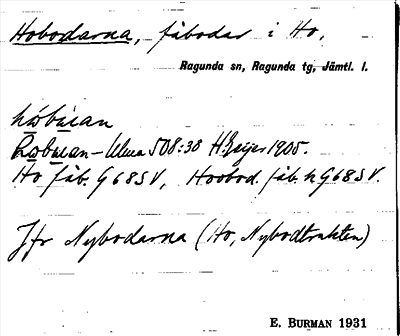 Hobodarna, fäbodar i Ho.
Ragunda sn, Ragunda tg, Jämtl. l.
508:38 H. Geijer 1905.
Ho fäb. G 68 SV, Hoobod. fäb. h G 68 SV.
Jfr Nybodarna (Ho, Nybodtrakten)
E. BURMAN 1931